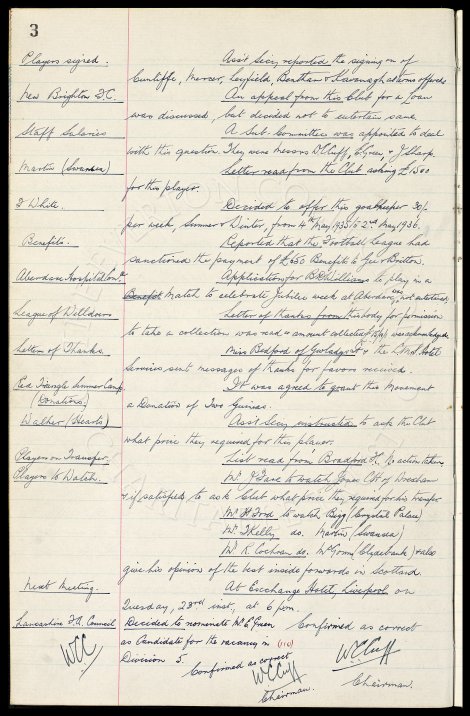 3
Players signed. Ass't Secy reported the signing on of
Cunliffe, Mercer, Leyfield, Bentham & Kavanagh at terms offered
New Brighton F.C. An appeal from this Club for a loan
was discussed, but decided not to entertain same.
Staff Salaries A Sub-Committee was appointed to deal
with this question. They were Messrs W.C. Cuff, E. Green, & J. Sharp.
Martin (Swansea) Letter read from the Club asking £1500
for this player.
J White. Decided to offer this goalkeeper 30/-
per week, Summer & Winter, from 4th May 1935 to 2nd May 1936.
Benefits. Reported that the Football League had
sanctioned the payment of £650 Benefit to Geo. Britton.
Aberdare Hospital Application for B.D. Williams to play in a
Benefit Match to celebrate Jubilee week at Aberdare, was not entertained.
League of Welldoers Letter of thanks from Kirkby for permission
to take a collection was read & amount collected was acknowledged
Letters of Thanks. Miss Bedford of Gwladys St & the L.M.S. Hotel
Services sent messages of thanks for favors received.
Red Triangle Summer Camp It was agreed to grant this Movement
(Donations) a Donation of Two Guineas.
Walker (Hearts) Ass't Secy instructed to ask the Club
what price they required for this player.
Players on Transfer. List read from Bradford F.C. No action taken
Players to Watch. Mr to watch Jones C.H. of Wrexham
& if satisfied to ask Club what price they required for his transfer
Mr H Ford to watch Bigg (Crystal Palace)
Mr T Kelly do. Martin (Swansea)
Mr R. Cochran do. (Clydebank) & also
give his opinion of the best inside forwards in Scotland.
Next Meeting. At Exchange Hotel, Liverpool on
Tuesday, 23rd inst, at 6 p.m.
Lancashire F.A. Council Decided to nominate Mr E Green Confirmed as correct
as Candidate for the vacancy in (110)
Division 5. Confirmed as correct
WCC
W C Cuff
Chairman.
W C Cuff
Chairman.